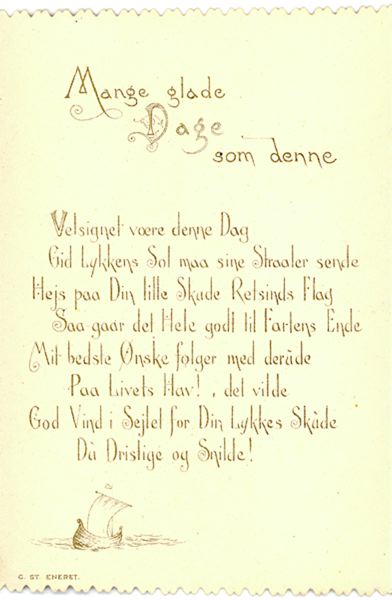 Mange glade
Dage
som denne
Velsignet være denne Dag
Gid Lykkens Sol maa sine Straaler sende
Hejs paa Din lille Skude Retsinds Flag
Saa gaar det Hele godt til Fartens Ende
Mit bedste Ønske følger med derude
Paa Livets Hav! , det vilde
God Vind i Sejlet for Din Lykkes Skude
Du Dristige og Snilde!
G. ST. ENERET.